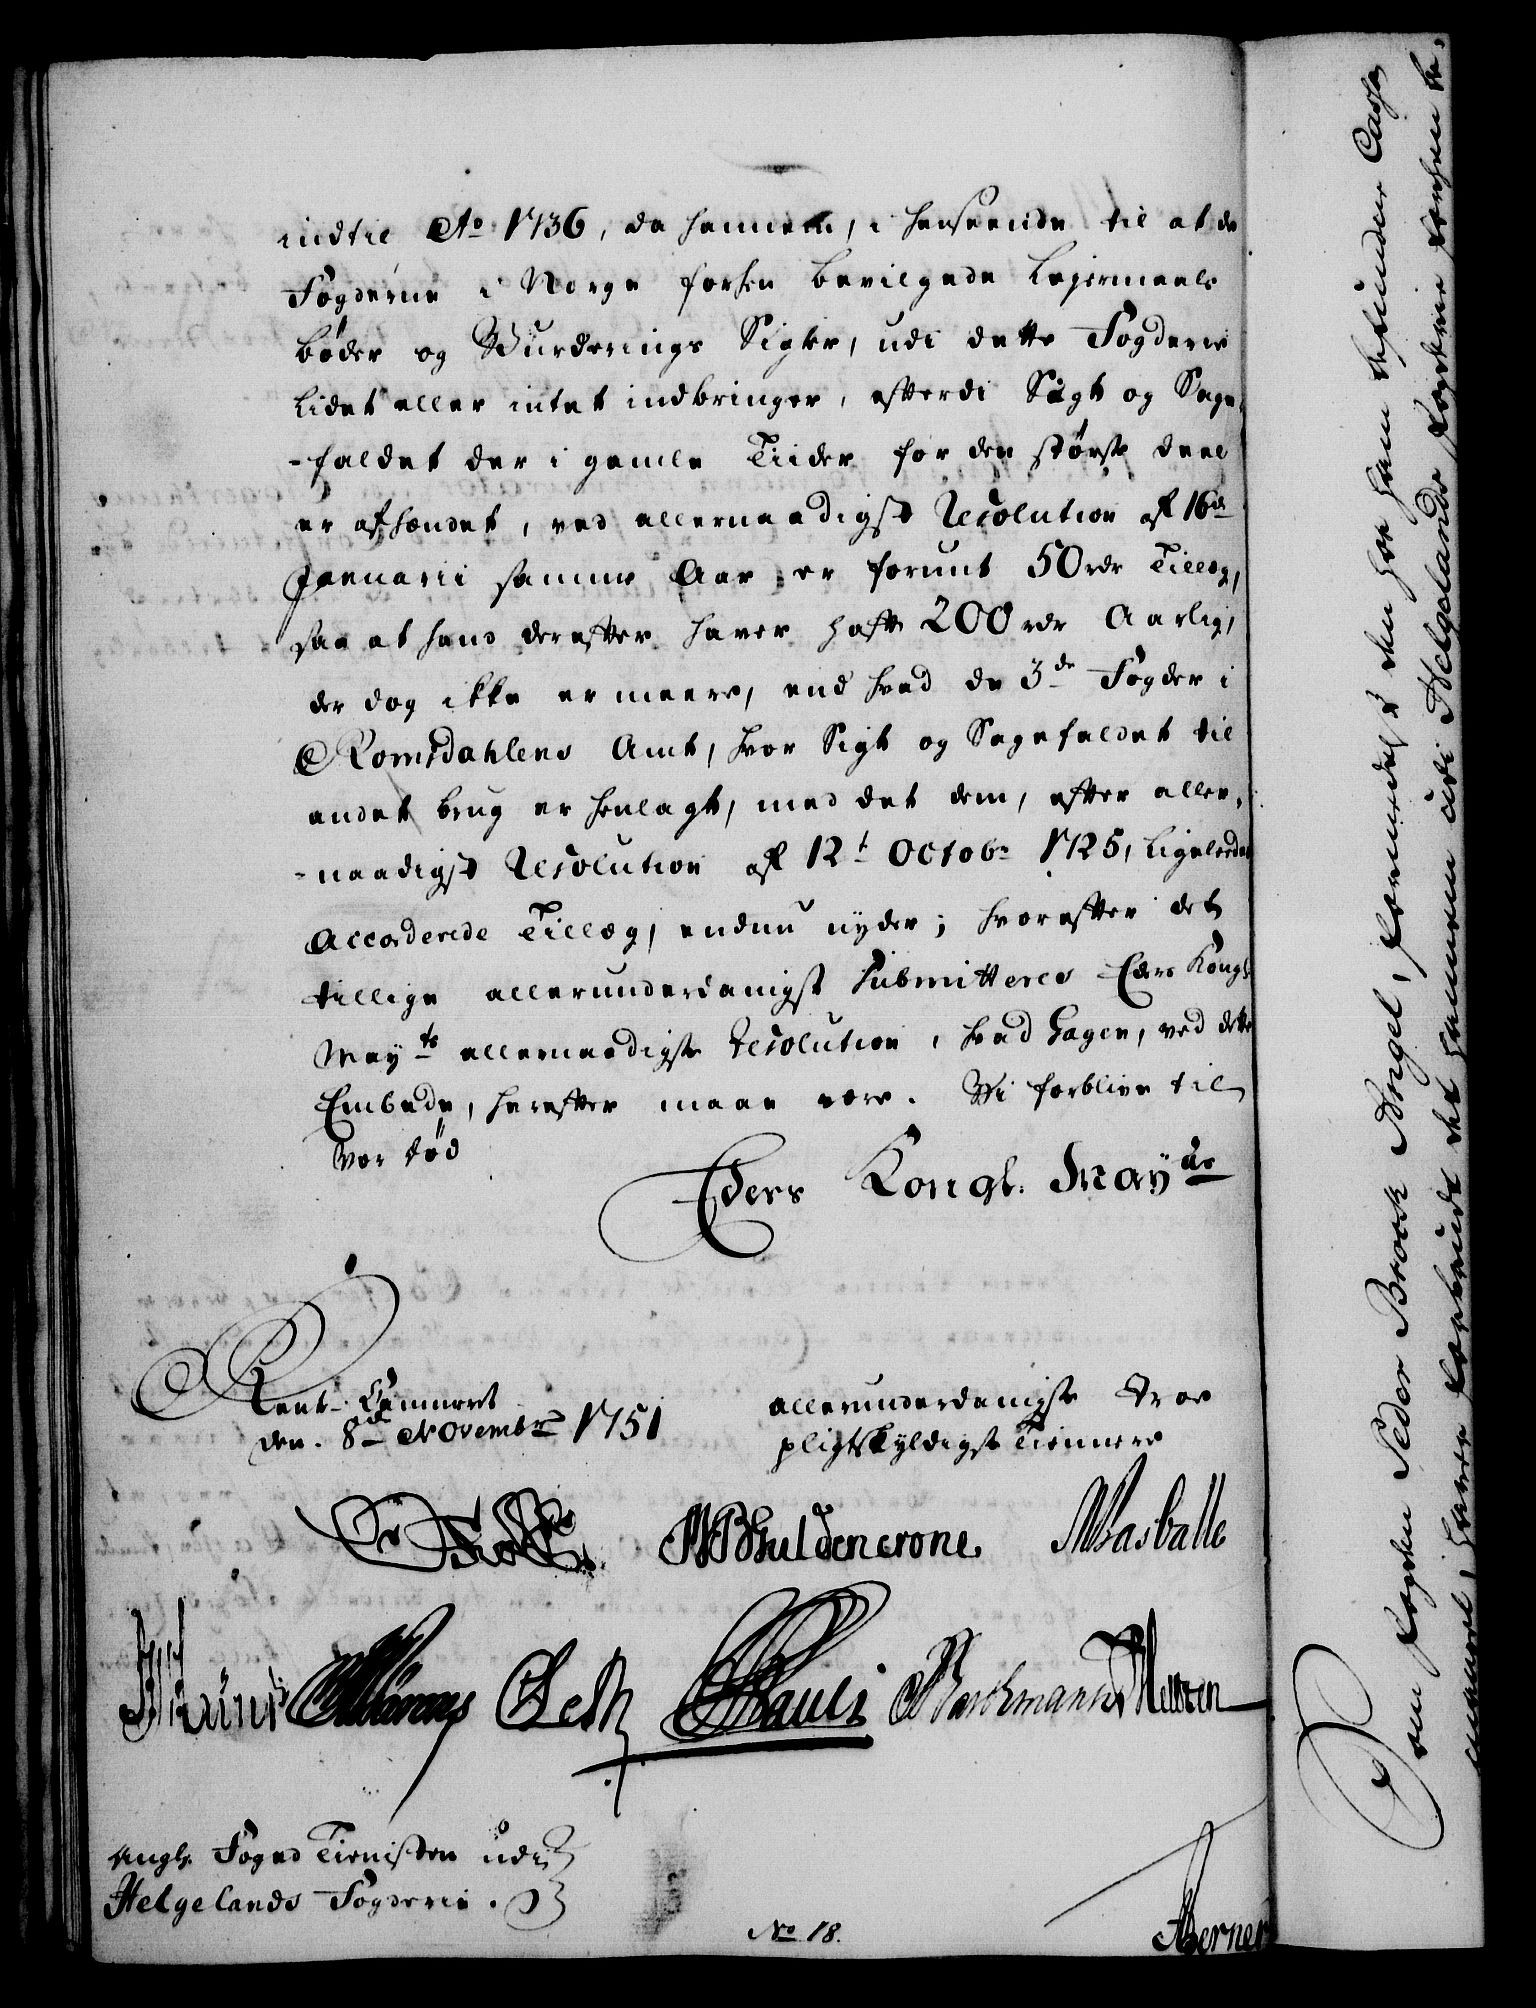 indtil Ao 1736, da hannem, i henseende til at de
Fogderne i Norge forhen bevilgede Lejermaals
bøder og Wurderings Sigter, udi dette Fogderie
lidet eller intet indbringer, efterdi Sigt og Sage-
-faldet der i gamle Tiider for den største deel
er afhændet, ved allernaadigst Resolution af 16de
Januarii samme Aar er forunt 50 rdr Tillæg,
saa at hand derefter haver haft 200 rdr Aarlig,
der dog ikke er meere, end hvad de 3de Fogder i
Romsdahlens Amt, hvor Sigt og Sagefaldet til
andet brug er henlagt, med det dem, efter aller-
-naadigst Resolution af 12t Octobr 1725, ligeleedes
Accorderede Tillæg, endnu nyder; hvorefter det
tillige allerunderdanigst Submitteres Eders Kongl.
Mayts allernaadigste Resolution, hvad Gagen, ved dette
Embede, herefter maae være. Wi forblive til
vor død
Eders Kongl. Mayts
Rente-Cammeret
den 8de Novembr 1751
allerunderdanigste troe
pligtskyldigst Tiennere
JWBGuldencrone. Masballe
Pauli Barchmann
angl. Foged Tienisten udi
Helgelands Fogderie.
No 18.
Berner
Som Fogden Peder Brock Angel, formedelst den hos ham befundne Cassa